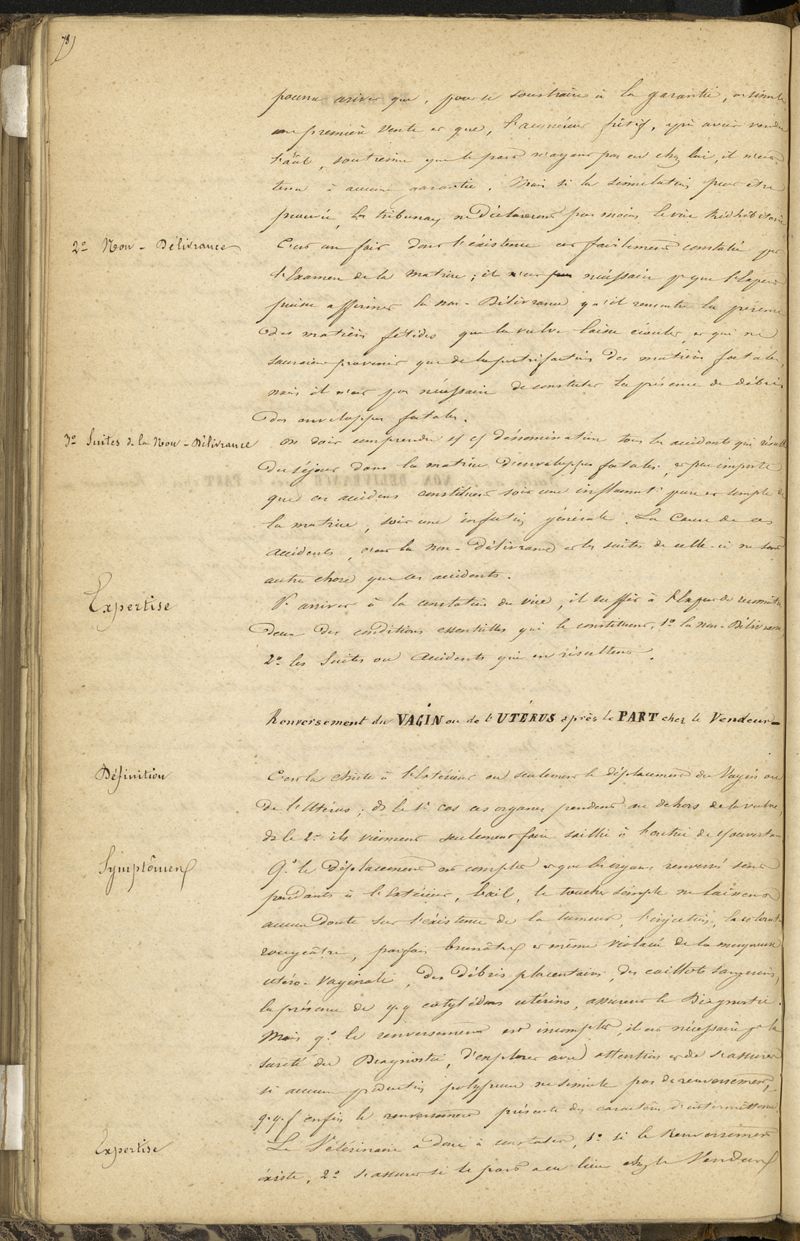 78)
pourra arriver que, pour se soustraire à la garantie, on simule
une première vente et que, l'acquéreur fictif, après avoir vendu
l'âne, soutienne que le part n'ayant pas eu chez lui, il n'est
tenu à aucune garantie. Mais si la simulation peut être
prouvée, les tribunaux ne déclareront pas moins le vice Rédhibitoire
2º Non-Délivrance
C'est un fait dont l'existence est facilement constatée par
l'Examen de la matrice; il n'est pas nécessaire pr que l'Expert
puisse affirmer la non-Délivrance qu'il rencontre la présence
des matières fétides que la vulve laisse écouler, et qui ne
sauraient provenir que de la putréfaction des matières fœtales,
mais il n'est pas nécessaire de constater la présence de débris
des enveloppes fœtales.
3º Suites de la Non-Délivrance
On doit comprendre ss cs dénomination tous les accidents qui résultent
du séjour dans la matrice d'enveloppes fœtales, et peu importe
que ces accidens constituent soit une inflammt pure et simple de
la matrice, soit une infection générale. La Cause de ces
accidents, c'est la non-Délivrance et les suites de celle-ci ne sont
autre chose que ces accidents.
Expertise
Pr arriver à la constation du vice, il suffit à l'Expert de reconnaître
deux des conditions essentielles qui le constituent, 1º la non-Délivrance
2º les Suites ou accidents qui en résultent.
Renversement du VAGIN ou de l'UTÉRUS après le PART chez le Vendeur
Définition
C'est la chute à l'Extérieur ou seulement le déplacement du Vagin ou
de l'Utérus; ds le 1er cas ces organes pendent au dehors de la vulve,
ds le 2e ils viennent seulement faire saillie à l'entrée de l'ouverture
Symptômes
Qd le déplacement est complet et que les organes renversés sont
pendants à l'Extérieur, l'œil, le toucher simple ne laissent
aucun doute sur l'existence de la tumeur, l'injection, la couleur
rougeâtre, parfois brunâtre et même violacée de la muqueuse
utéro-vaginale, des débris placentaires, des caillots sanguins,
la présence de qq cotylédons utérins, assurent le Diagnostic.
Mais qd le renversement est incomplet il est nécessaire pr la
sureté du Diagnostic, d'explorer avec attention et de s'assurer
si aucune production polypeuse ne simule pas de renversement,
qqf enfin le renversement présente des caractères d'intermittence
Expertise
Le Vétérinaire a donc à constater, 1º si le Renversement
existe, 2º s'assurer si le part a eu lieu chez le Vendeur